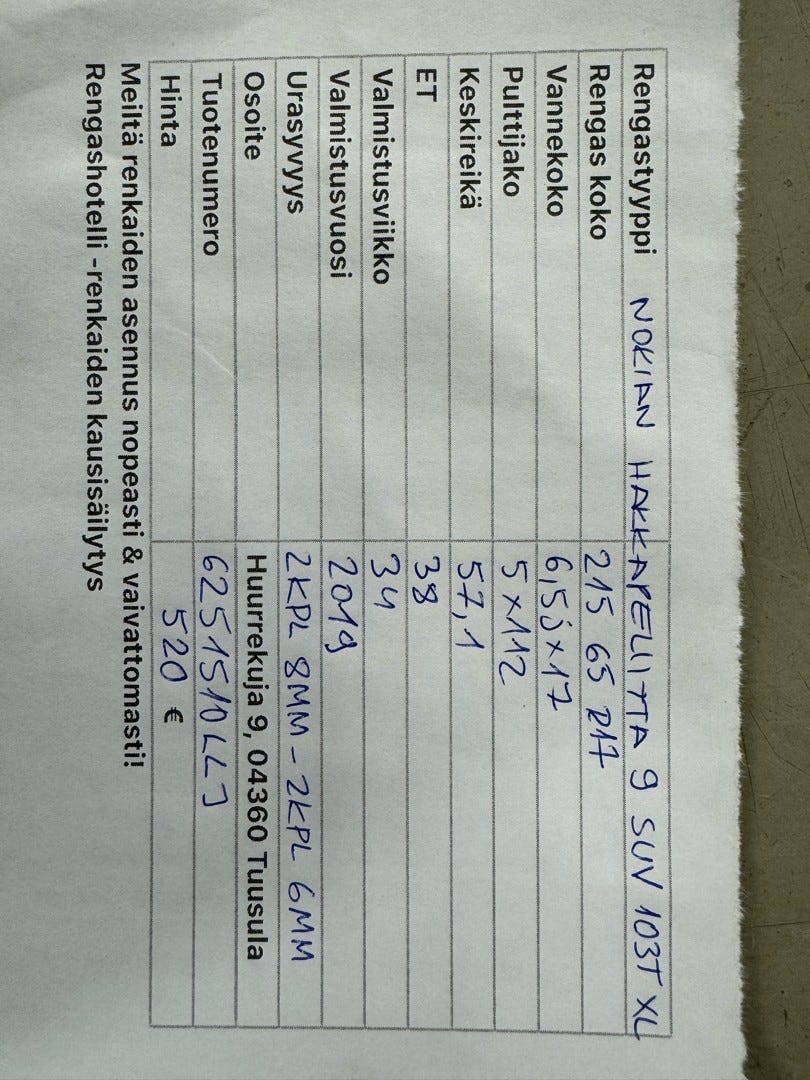 Rengastyyppi NOKIAN HAKKAPELIITTA 9 SUV 103T XL
Rengas koko 215 65 R17
Vannekoko 6,5Jx17
Pulttijako 5x112
Keskireikä 57,1
ET 38
Valmistusviikko 34
Valmistusvuosi 2019
Urasyvyys 2KPL 8MM - 2KPL 6MM
Osoite Huurrekuja 9, 04360 Tuusula
Tuotenumero 6251510LLJ
Hinta 520 €
Meiltä renkaiden asennus nopeasti & vaivattomasti!
Rengashotelli -renkaiden kausisäilytys